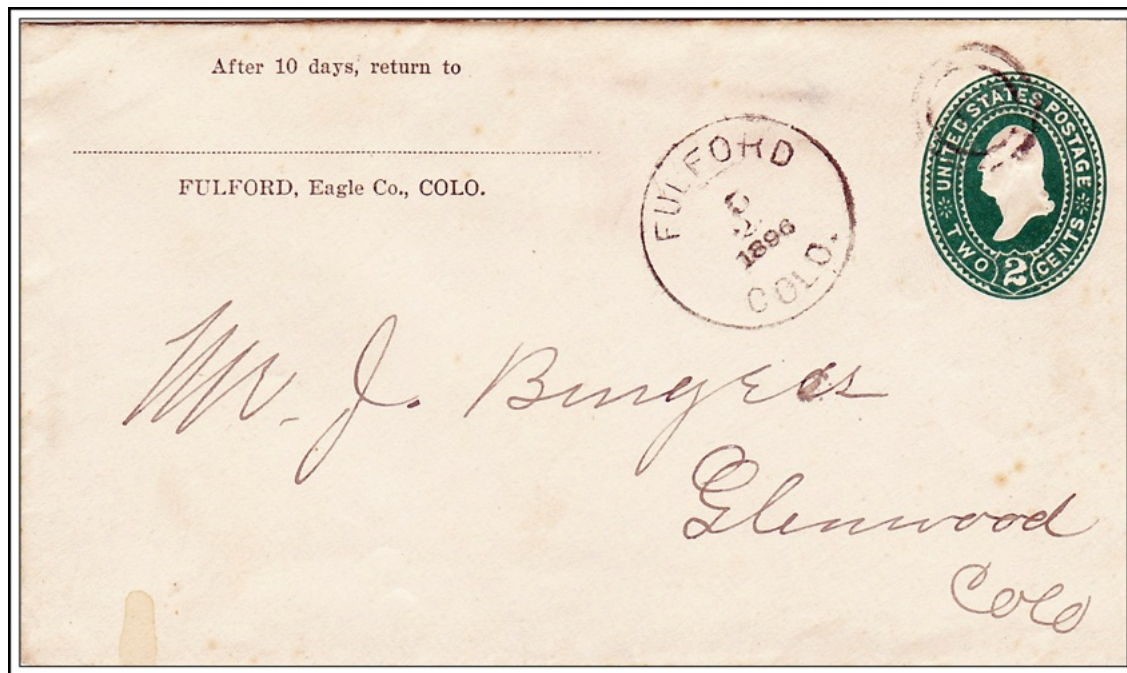 After 10 days, return to
FULFORD, Eagle Co., COLO.
FULFORD
1896
COLO.
UNITED STATES POSTAGE
TWO 2 CENTS
Mr. J. Burgess
Glenwood
Colo